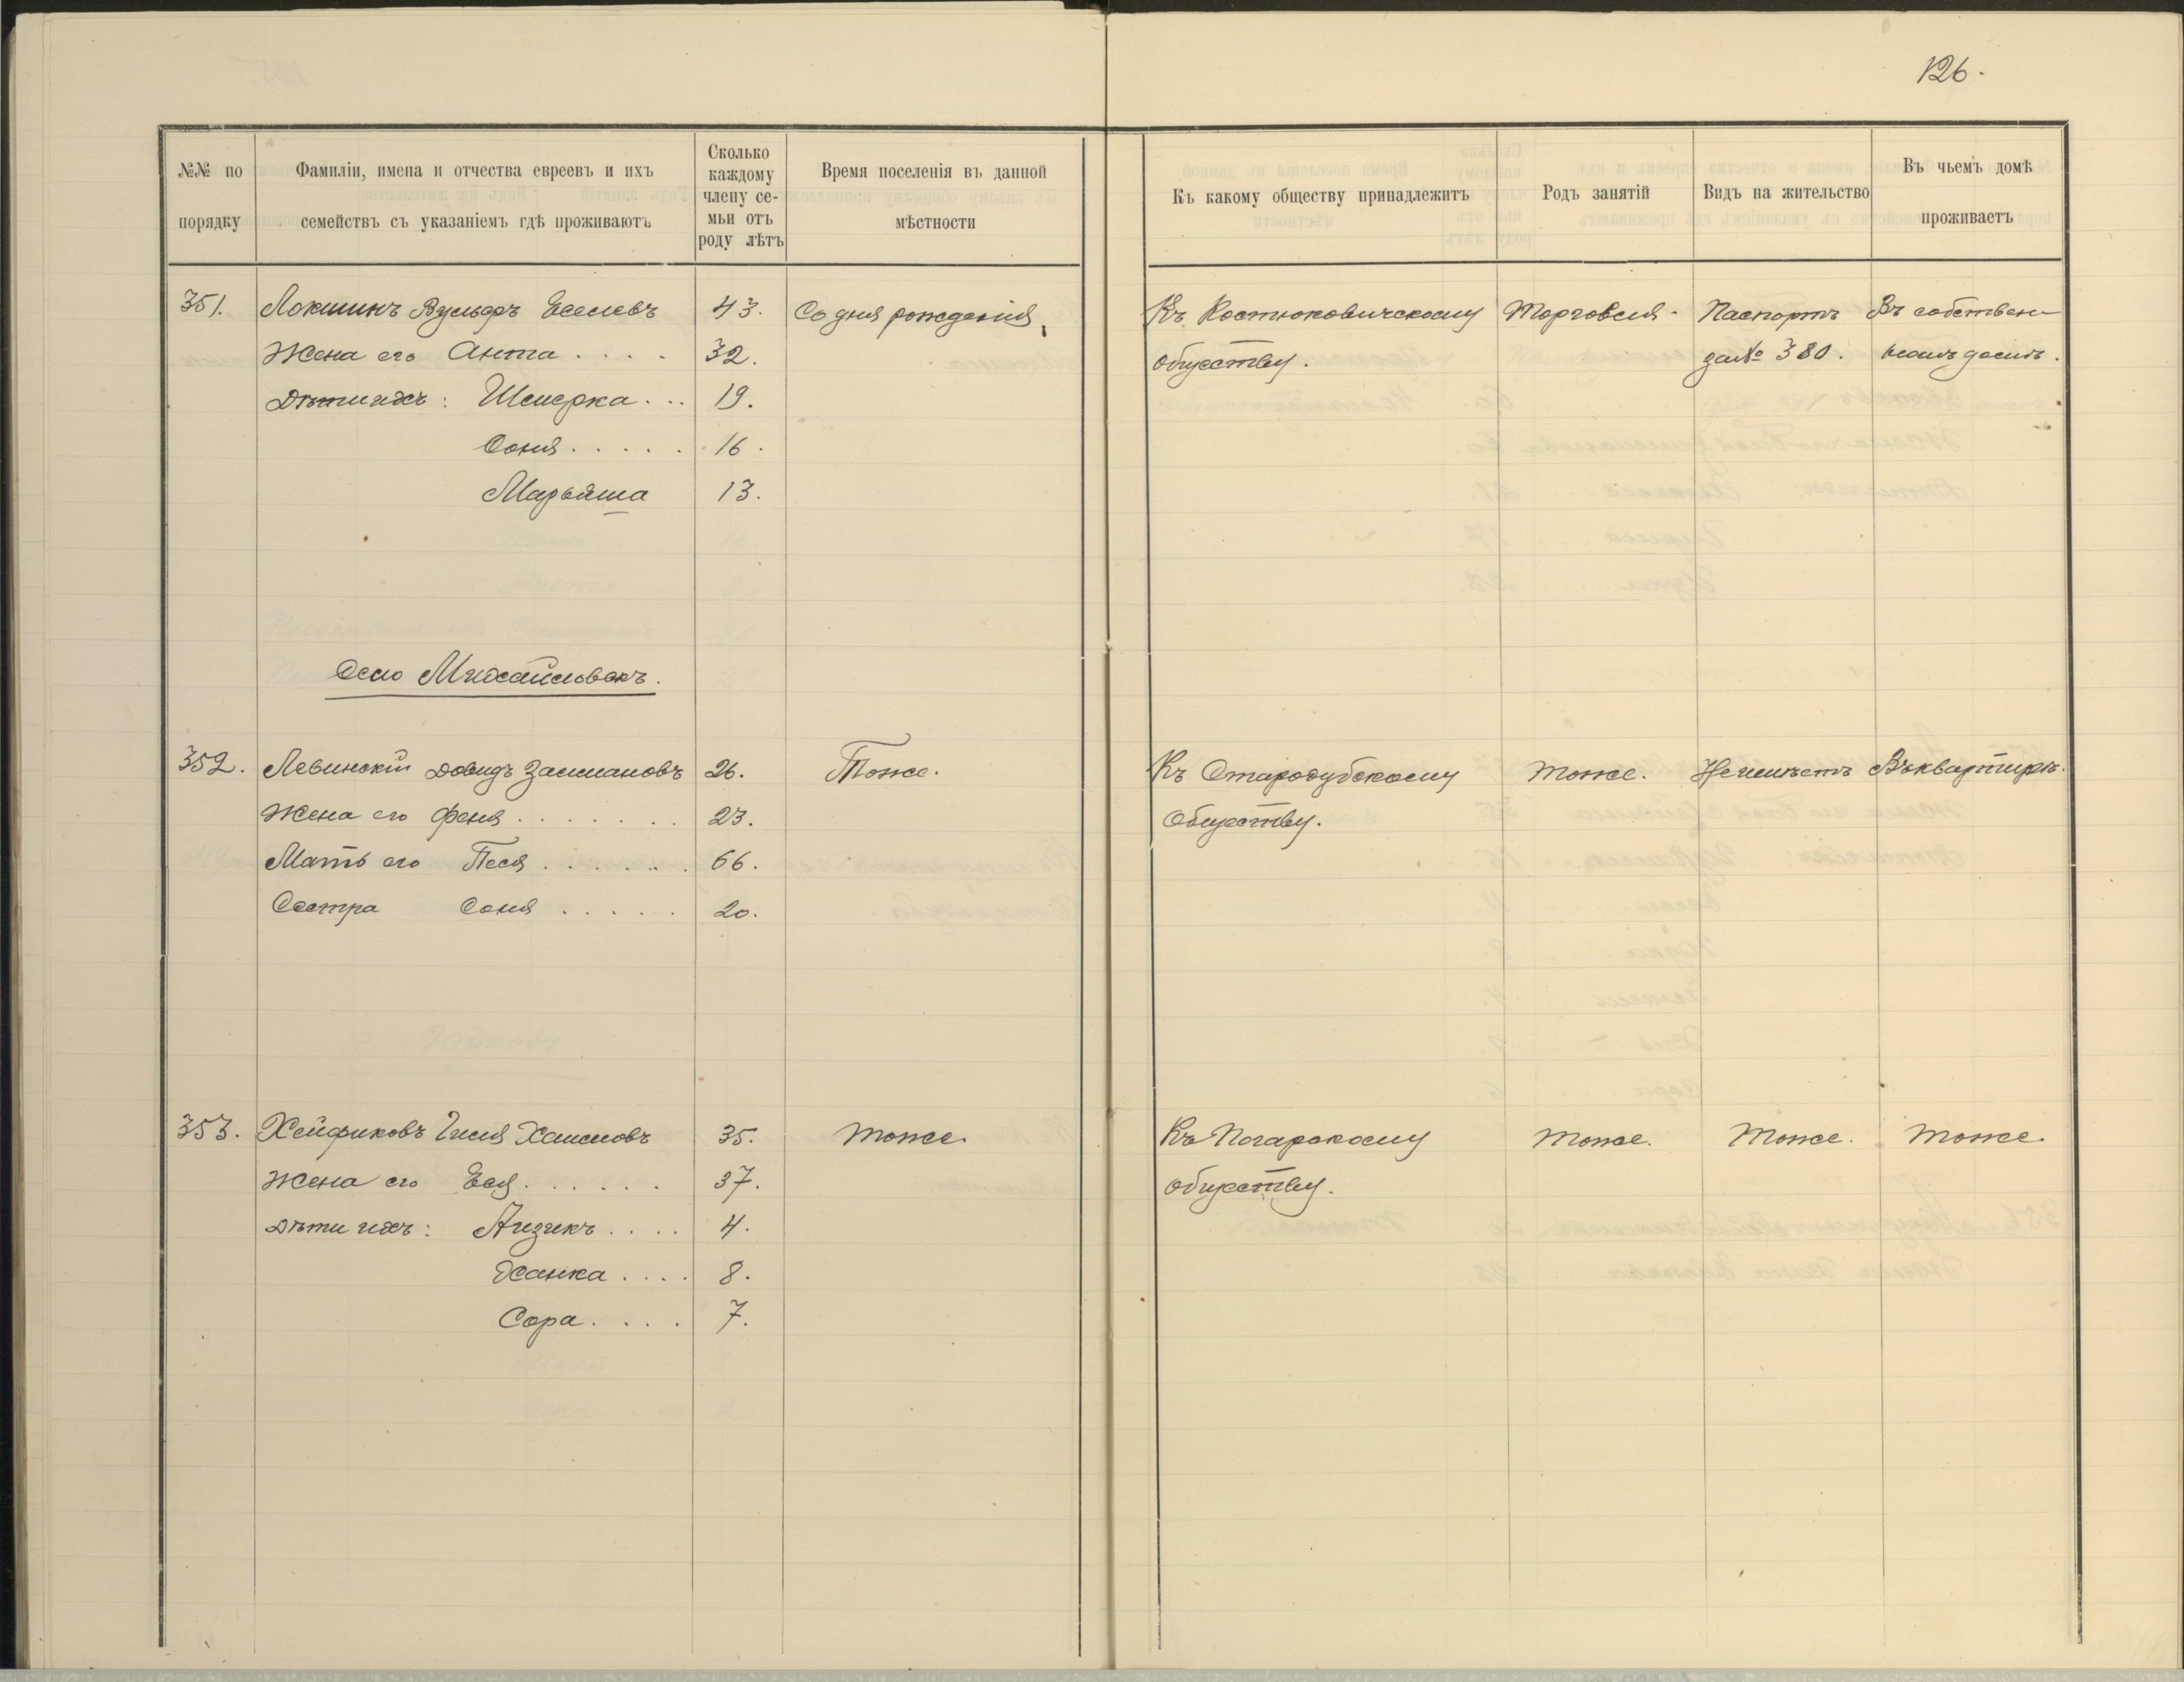 126.
№№ по порядку
Фамиліи, имена и отчества евреевъ и ихъ семействъ съ указаніемъ гдѣ проживаютъ
Сколько каждому члену се-мьи отъ роду лѣтъ
Время поселенія въ данной мѣстности
Къ какому обществу принадлежитъ
Родъ занятій
Видъ на жительство
Въ чьемъ домѣ проживаетъ
351. Локшинъ Вульфъ Еселевъ 43. Со дня рожденія. Къ Костюковичскому Торговля. Паспортъ Въ собствен-
Жена его Анта . . . . 32. обществу. за № 380. номъ домѣ.
Дѣти ихъ: Шмерка . . . 19.
Соня . . . . . 16.
Марьяша 13.
Село Михайловскъ.
352. Левинскій Довидъ Залмановъ 26. Тоже. Къ Стародубскому тоже. Не имѣетъ Въ квартирѣ.
Жена его Феня . . . . . . . 23. Обществу.
Мать его Песя . . . . . . . 66.
Сестра Соня . . . . . 20.
353. Хейфиковъ Гиля Хаимовъ 35. тоже. Къ Погарскому тоже. тоже. тоже.
Жена его Еся . . . . . . 37. обществу.
Дѣти ихъ: Айзикъ . . . . 4.
Ханка . . . . 8.
Сора . . . . 7.